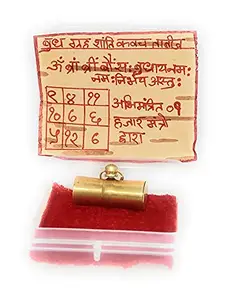 बुध ग्रह शांति कवच ताबीज
ॐ ब्रां ब्रीं ब्रौं सः बुधाय नमः
नमः निर्भय अस्तुः
९ ४ ११
१० ८ ६
५ १२ ७
अभिमंत्रित ०९
हजार मंत्रो
द्वारा